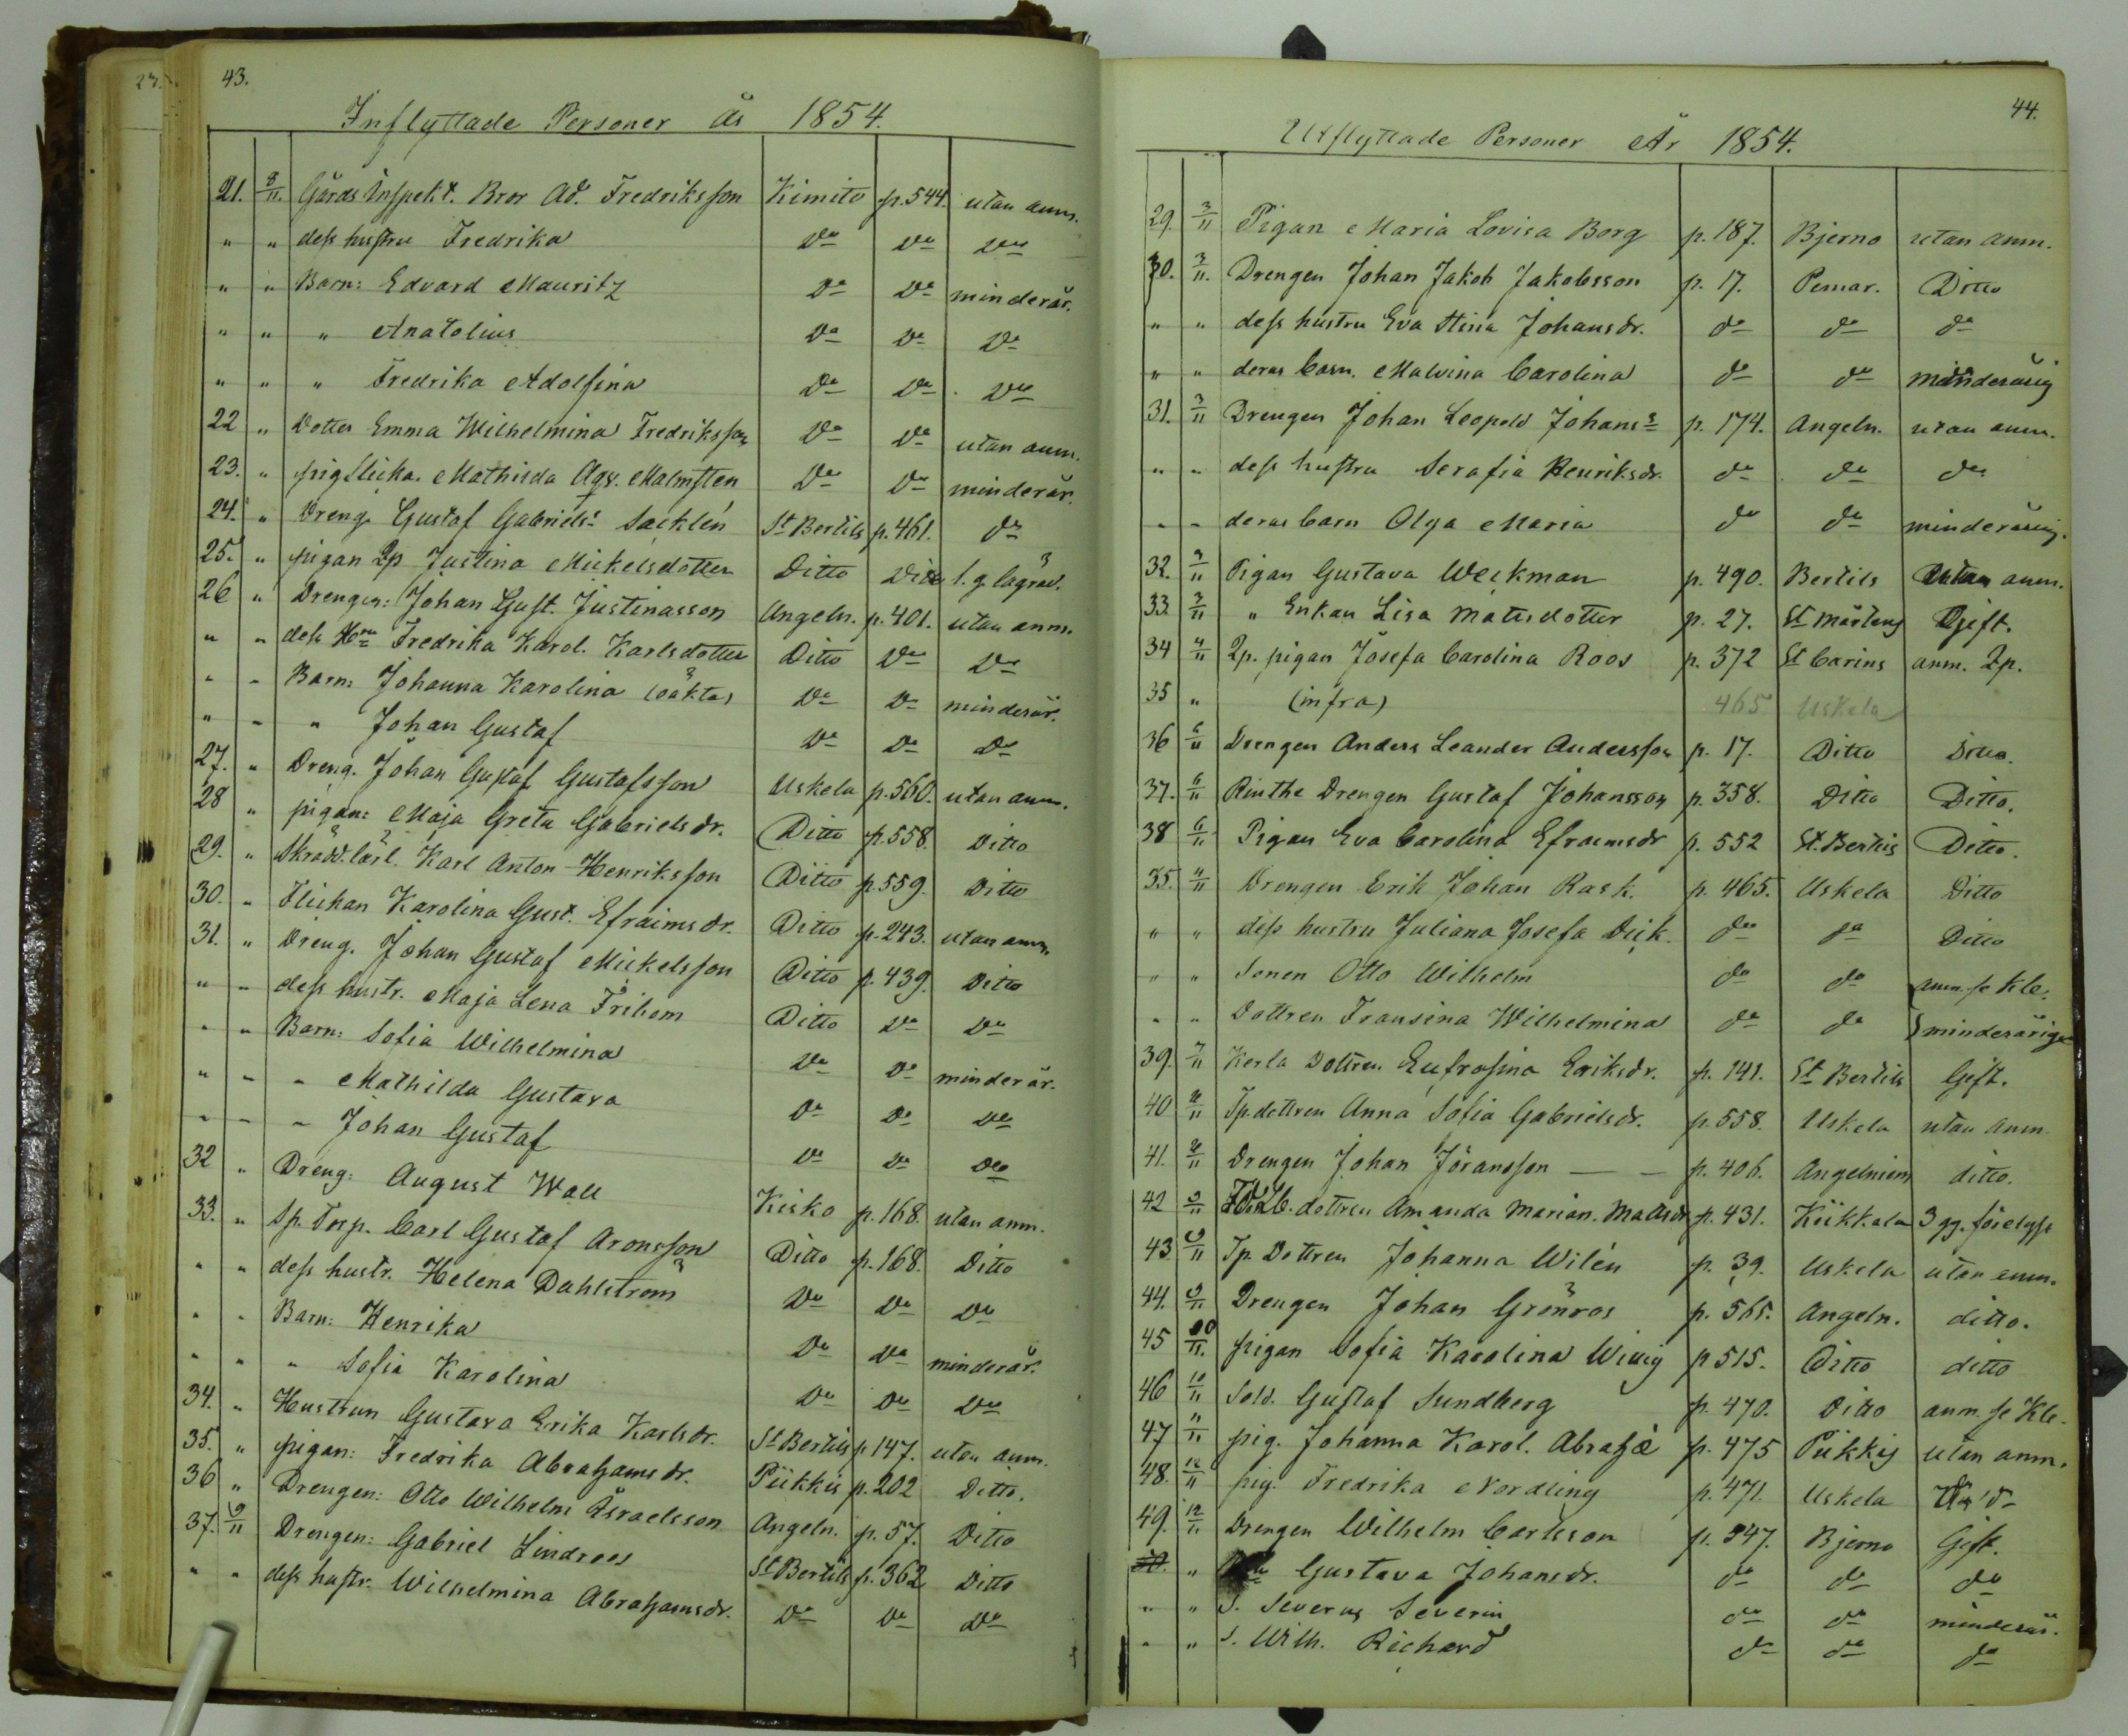 43.
Inflyttade Personer År 1854.
21. 8/11. Gårds Inspekt. Bror Ad. Fredriksson Kimito p. 544. utan anm.
" " dess hustru Fredrika Do Do Do
" " Barn: Edvard Mauritz Do Do minderår.
" " " Anatolius Do Do Do
" " " Fredrika Adolfina Do Do Do
22 " Dotter Emma Wilhelmina Fredriksson Do Do utan anm.
23. " pig flicka. Mathilda Malmsten Do Do minderår.
24. " Dreng Gustaf Gabrielss. Sacklén St Bertils p. 461. do
25. " pigan Lp Justina Mickelsdotter Ditto Dito l. g. lagrad.
26 " Drengen: Johan Gust. Justinasson Angeln. p. 401. utan anm.
" " dess Hru Fredrika Karol. Karlsdotter Ditto Do Do
" " Barn: Johanna Karolina (oäkta) Do Do minderår.
" " " Johan Gustaf Do Do Do
27. " Dreng. Johan Gustaf Gustafsson Uskela p. 560. utan anm.
28 " pigan: Maja Greta Gabrielsdr. Ditto p. 558. Ditto
29. " Skrädd. lärl. Karl Anton Henriksson Ditto p. 559. Ditto
30. " Flickan Karolina Gust. Efraimsdr. Ditto p. 243. utan anm.
31. " Dreng. Johan Gustaf Mickelsson Ditto p. 439. Ditto
" " dess hustr. Maja Lena Fribom Ditto Do Do
" " Barn: Sofia Wilhelmina Do Do minderår.
" " " Mathilda Gustava Do Do Do
" " " Johan Gustaf Do Do Do
32 " Dreng: August Wall Kisko p. 168. utan anm.
33. " Sp. Torp. Carl Gustaf Aronsson Ditto p. 168. Ditto
" " dess hustr. Helena Dahlström Do Do Do
" " Barn: Henrika Do Do minderår.
" " " Sofia Karolina Do Do Do
34. " Hustrun Gustava Erika Karlsdr. St Bertils p. 147. utan anm.
35. " pigan: Fredrika Abrahamsdr. Piikkis p. 202 Ditto.
36 " Drengen: Otto Wilhelm Israelsson Angeln. p. 57. Ditto
37. 9/11 Drengen: Gabriel Lindroos St Bertils p. 362 Ditto
" " dess hustr. Wilhelmina Abrahamsdr. Do Do Do
44.
Utflyttade Personer År 1854.
29. 3/11 Pigan Maria Lovisa Borg p. 187. Bjerno utan anm.
30. 3/11. Drengen Johan Jakob Jakobsson p. 17. Pemar. Ditto
" " dess hustru Eva Stina Johansdr. do do do
" " deras barn. Malvina Carolina do do minderårig
31. 3/11 Drengen Johan Leopold Johanss p. 174. Angeln. utan anm.
" " dess hustru Serafia Henriksdr. do do do
" " deras barn Olga Maria do do minderårig.
32. 3/11 Pigan Gustava Weckman p. 490. Bertils utan anm.
33. 3/11 " Enkan Lisa Matsdotter p. 27. St Mårtens Gift.
34 4/11 Lp. pigan Josefa Carolina Roos p. 372 St Carins anm. Lp.
35 " (infra) 465 Uskela
36 6/11 Drengen Anders Leander Andersson p. 17. Ditto Ditto.
37. 6/11 Rusthe Drengen Gustaf Johansson p. 358. Ditto Ditto.
38 6/11 Pigan Eva Carolina Efraimsdr p. 552 St. Bertils Ditto.
35. 4/11 Drengen Erik Johan Rask. p. 465. Uskela Ditto
" " dess hustru Juliana Josefa Dick. do do Ditto
" " Sonen Otto Wilhelm do do anm. se Kb.
" " Dottren Fransina Wilhelmina do do minderåriga
39. 7/11 Kerla Dottren Eufrosina Eriksdr. p. 141. St Bertils Gift.
40 8/11 Tp. dottren Anna Sofia Gabrielsdr. p. 558. Uskela utan anm
41. 8/11 Drengen Johan Jöransson p. 406. Angelniemi ditto.
42 9/11 dottren Amanda Marian. Mattsdr p. 431. Kiikkala 3 gg. förelyst
43 9/11 Tp. Dottren Johanna Wilén p. 39. Uskela utan anm.
44. 9/11 Drengen Johan Grönroos p. 565. Angeln. ditto.
45 10/11. pigan Sofia Karolina Widig p 515. Ditto ditto
46 10/11 Sold. Gustaf Sundberg p. 470. Ditto anm. se Kb.
47 11/11 pig. Johanna Karol. Abrahä p. 475 Piikkis utan anm.
48. 12/11 pig. Fredrika Nordling p. 471. Uskela do
49. 12/11 Drengen Wilhelm Carlsson p. 347. Bjerno Gift.
50. " Gustava Johansdr. do do do
" " S. Severus Severin do do minderår.
" " S. Wilh. Richard do do do